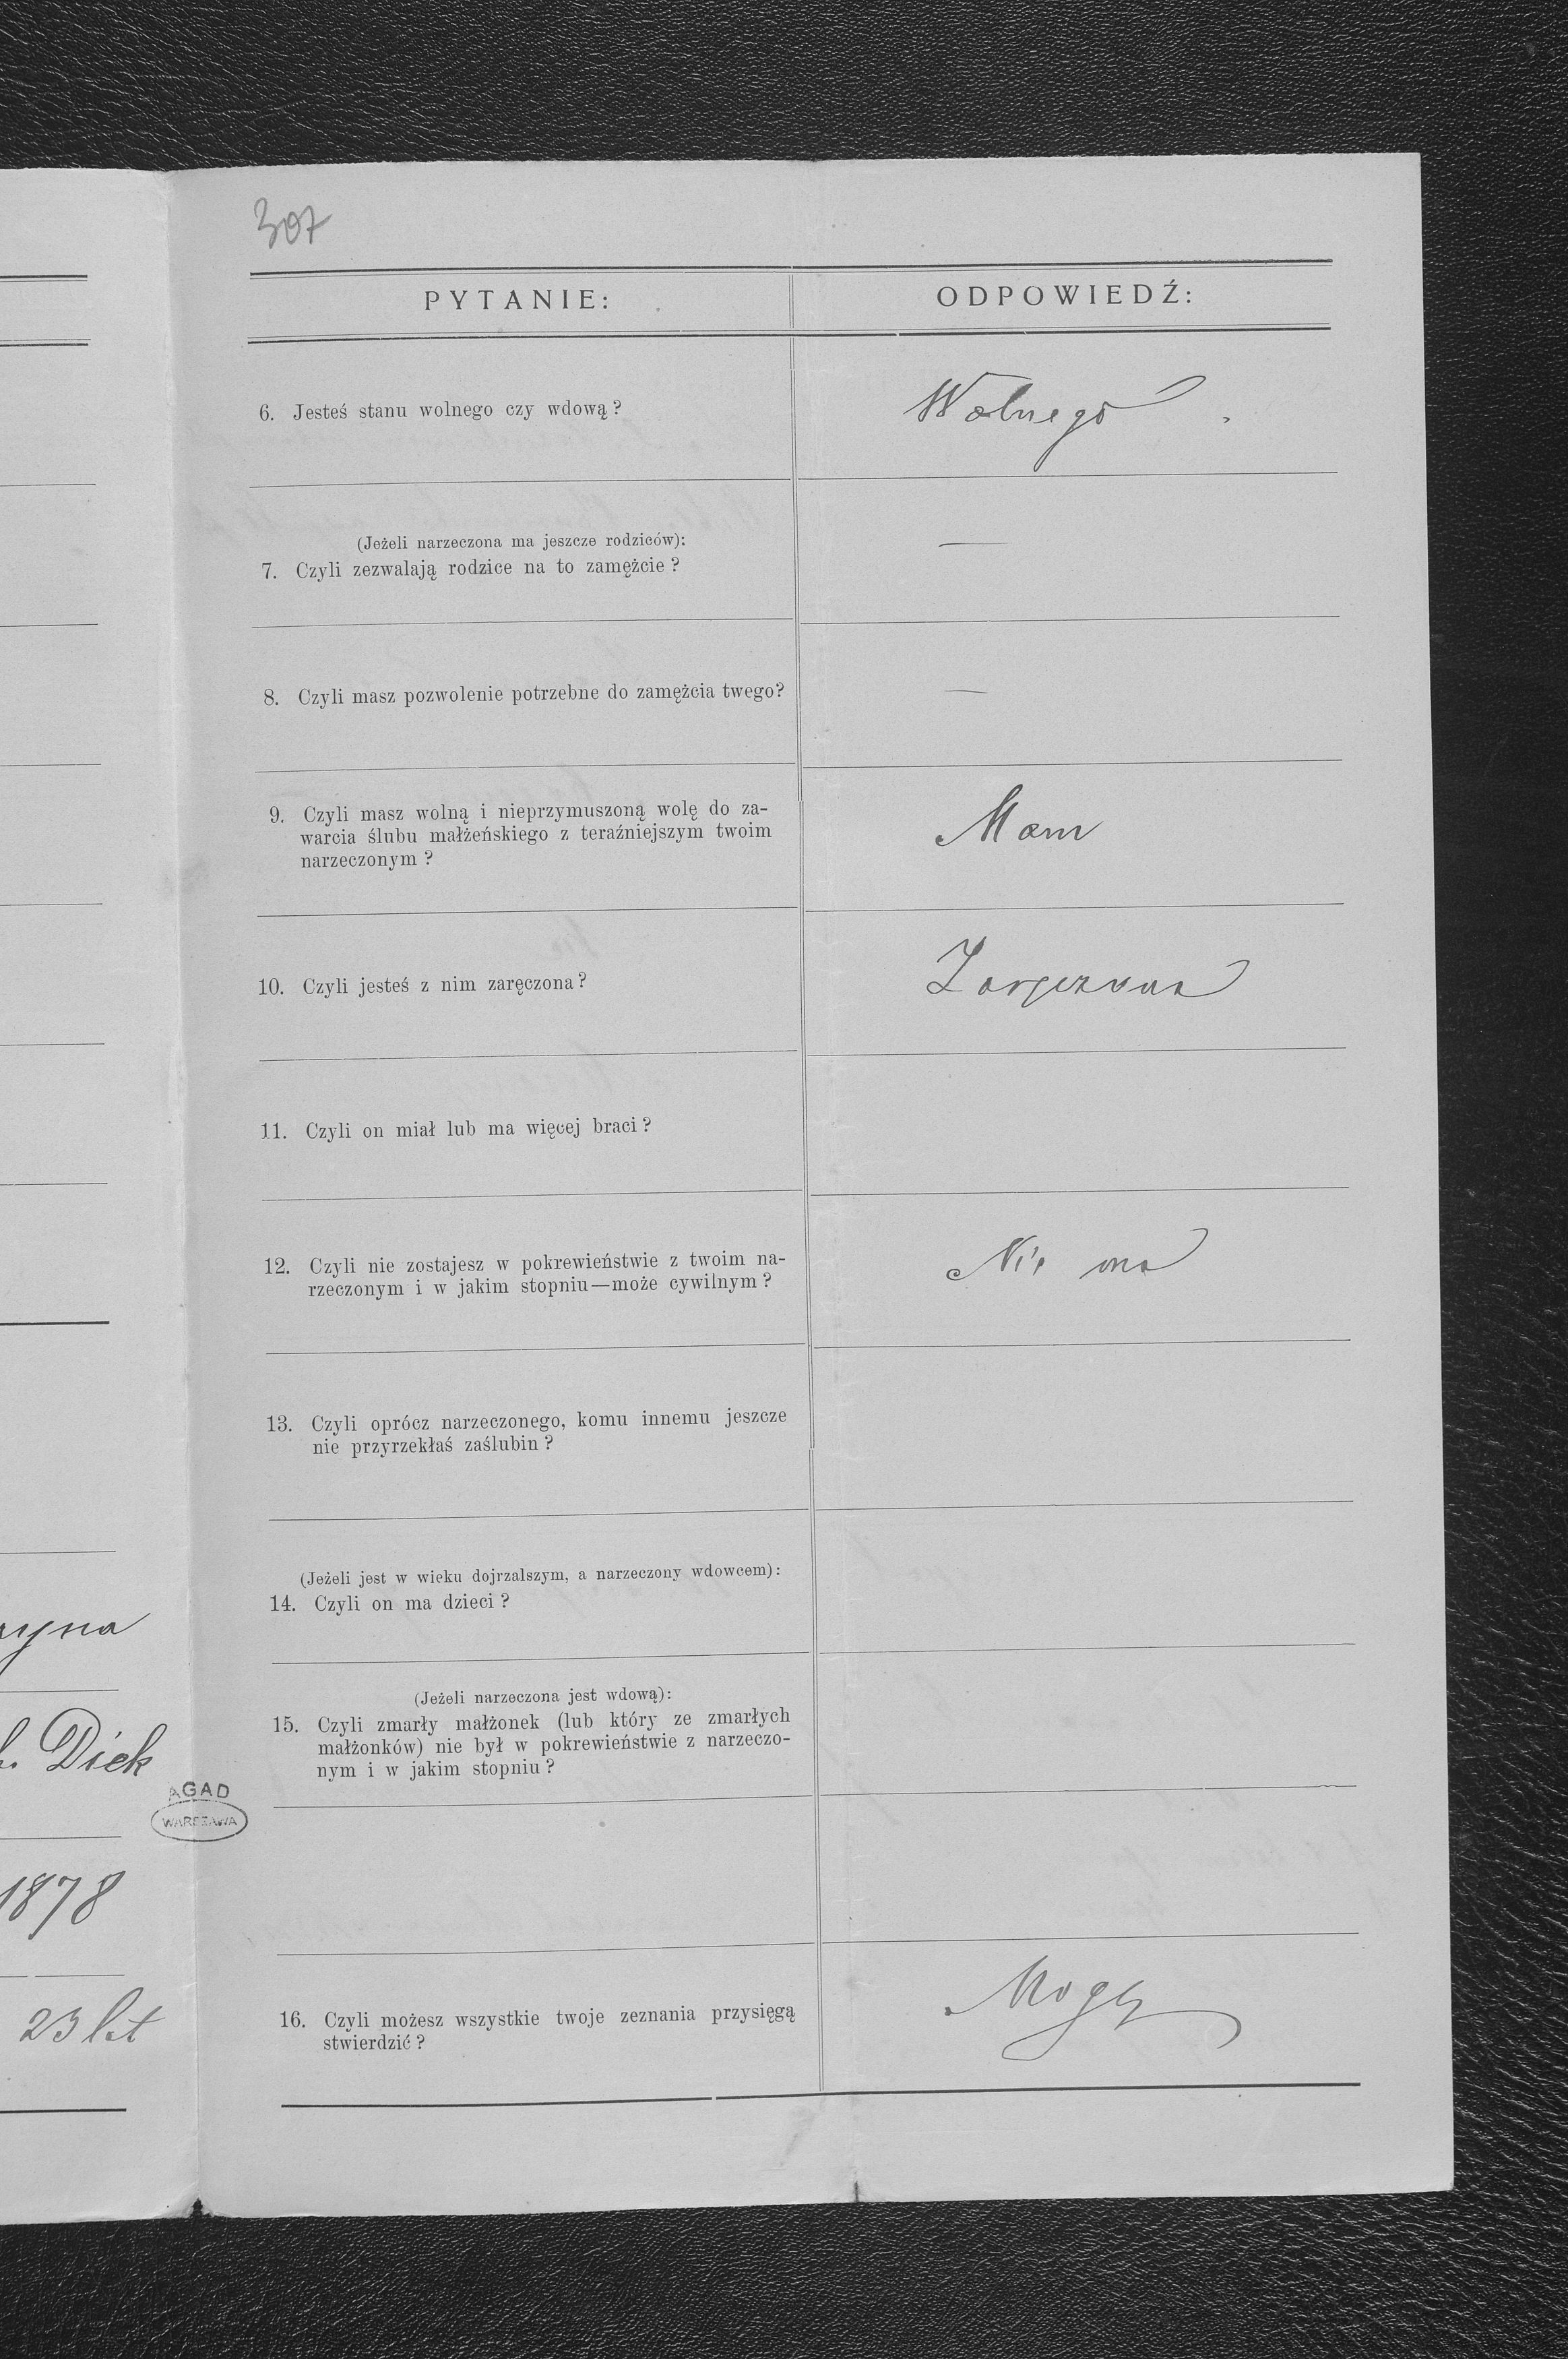 307
PYTANIE:
ODPOWIEDŹ:
6. Jesteś stanu wolnego czy wdową?
Wolnego
(Jeżeli narzeczona ma jeszcze rodziców):
7. Czyli zezwalają rodzice na to zamężcie?
—
8. Czyli masz pozwolenie potrzebne do zamężcia twego?
—
9. Czyli masz wolną i nieprzymuszoną wolę do za-
warcia ślubu małżeńskiego z teraźniejszym twoim
narzeczonym?
Mam
10. Czyli jesteś z nim zaręczona?
Zaręczona
11. Czyli on miał lub ma więcej braci?
12. Czyli nie zostajesz w pokrewieństwie z twoim na-
rzeczonym i w jakim stopniu—może cywilnym?
Nie ma
13. Czyli oprócz narzeczonego, komu innemu jeszcze
nie przyrzekłaś zaślubin?
(Jeżeli jest w wieku dojrzalszym, a narzeczony wdowcem):
14. Czyli on ma dzieci?
(Jeżeli narzeczona jest wdową):
15. Czyli zmarły małżonek (lub który ze zmarłych
małżonków) nie był w pokrewieństwie z narzeczo-
nym i w jakim stopniu?
16. Czyli możesz wszystkie twoje zeznania przysięgą
stwierdzić?
Mogę
Dick
AGAD
WARSZAWA
1878
23 lat